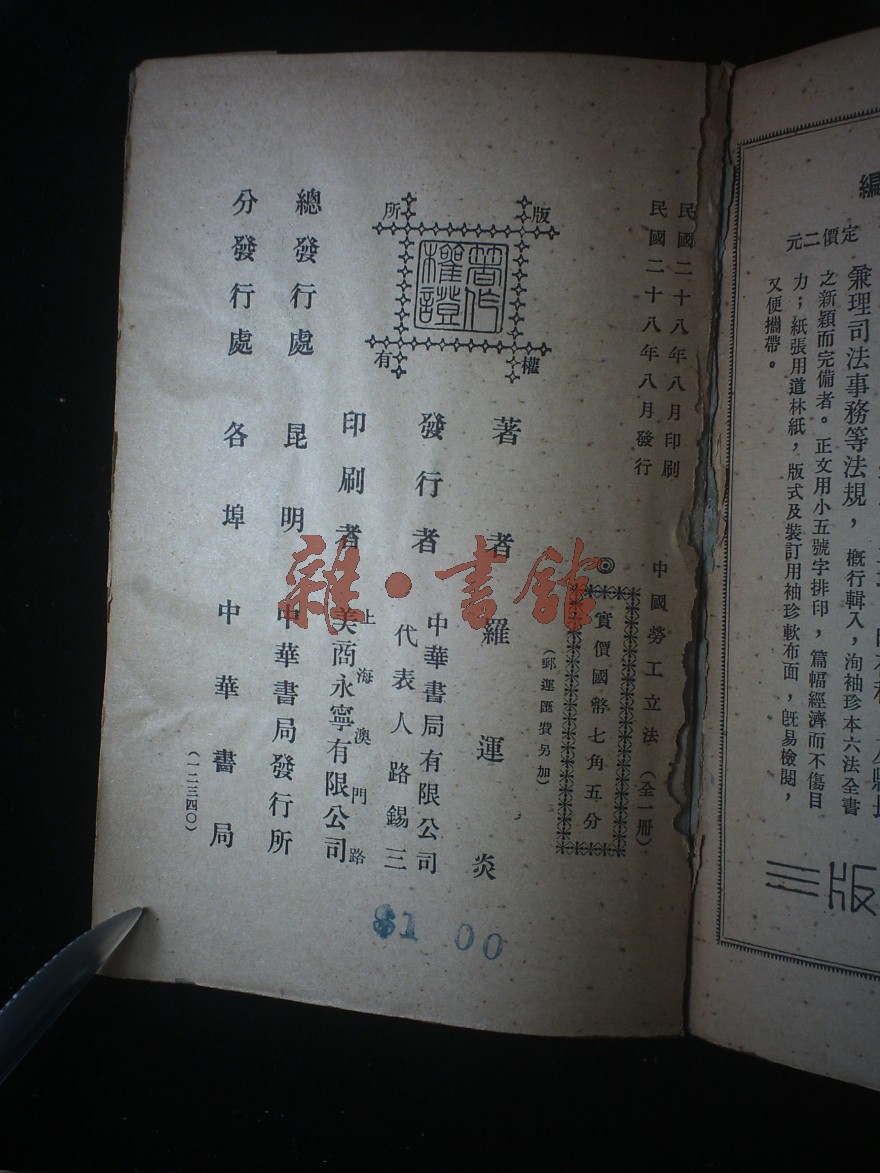 編
定價二元
兼理司法事務等法規，概行輯入，洵袖珍本六法全書
之新穎而完備者。正文用小五號字排印，篇幅經濟而不傷目
力；紙張用道林紙，版式及裝訂用袖珍軟布面，既易檢閱，
又便攜帶。
三版
民國二十八年八月印刷
民國二十八年八月發行
中國勞工立法（全一冊）
◎實價國幣七角五分
（郵運匯費另加）
版權所有
著作權證
著者 羅運炎
發行者 中華書局有限公司
代表人路錫三
印刷者 上海澳門路
美商永寧有限公司
總發行處 昆明 中華書局發行所
分發行處 各埠 中華書局
（一二三四〇）
81 00
雜·書館